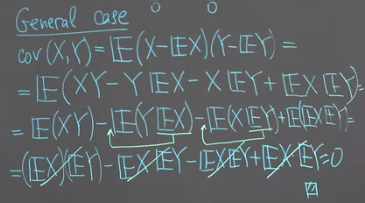 General case
0 0
cov(X,Y)=𝔼(X-𝔼X)(Y-𝔼Y)=
=𝔼(XY-Y𝔼X-X𝔼Y+𝔼X𝔼Y)=
=𝔼(XY)-𝔼(Y𝔼X)-𝔼(X𝔼Y)+𝔼(𝔼X𝔼Y)=
=(𝔼X)(𝔼Y)-𝔼X𝔼Y-𝔼X𝔼Y+𝔼X𝔼Y=0